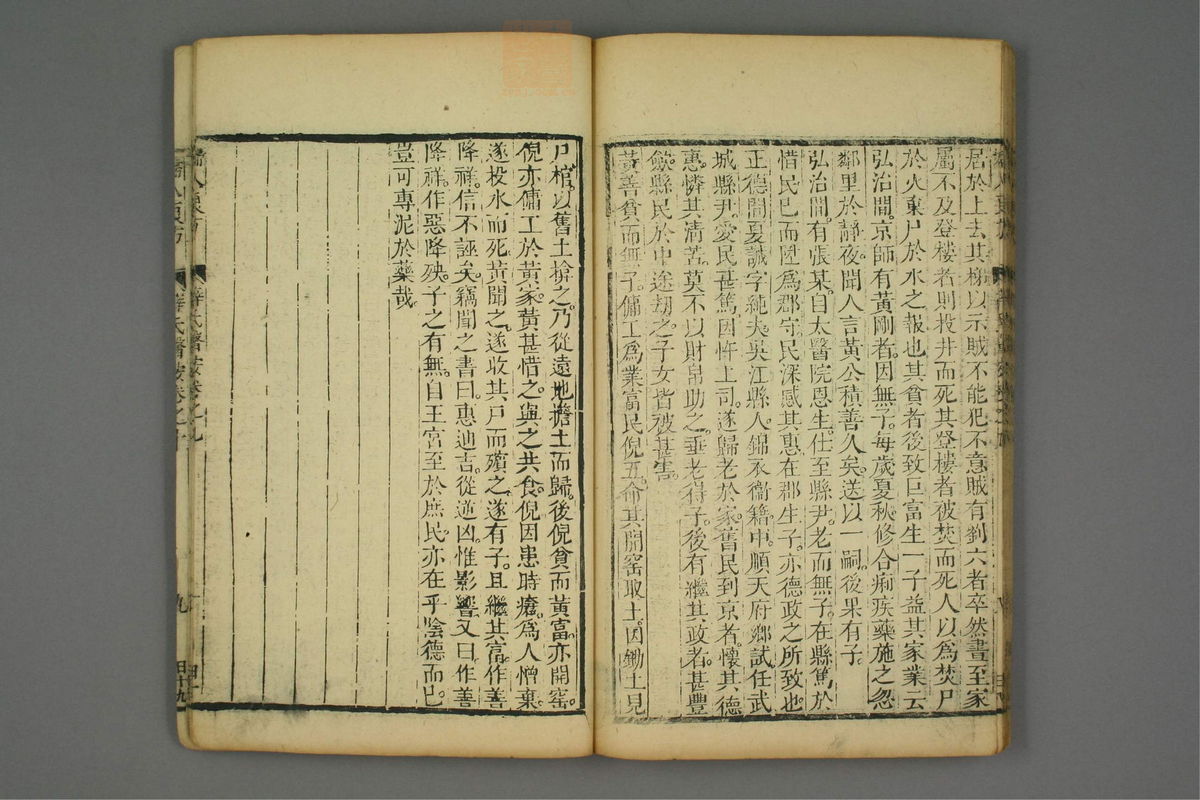 居於上去其梯以示賊不能犯不意賊有劉六者卒然晝至家
屬不及登樓者則投井而死其登樓者被焚而死人以為焚尸
於火棄尸於水之報也其貧者後致巨富生一子益其家業云
弘治間京師有黃剛者因無子每歲夏秋修合痢疾藥施之忽
鄰里於靜夜聞人言黃公積善久矣送以一嗣後果有子
弘治間有張某自太醫院恩生仕至縣尹老而無子在縣篤於
惜民已而陞為郡守民深感其惠在郡生子亦德政之所致也
正德間夏誠字純夫吳江縣人錦衣衛籍中順天府鄉試任武
城縣尹愛民甚篤因忤上司遂歸老於家舊民到京者懷其德
惠憐其清苦莫不以財帛助之垂老得子後有繼其政者甚豐
歛縣民於中途刼之子女皆被其害
黃善貧而無子傭工為業富民倪五命其開窑取土因鋤土見
尸棺以舊土揜之乃從遠地擔土而歸後倪貧而黃富亦開窑
倪亦傭工於黃家黃甚惜之與之共食倪因患時瘡為人憎棄
遂投水而死黃聞之遂收其尸而殯之遂有子且繼其富作善
降祥信不誣矣竊聞之書曰惠迪吉從逆凶惟影響又曰作善
降祥作惡降殃子之有無自王宮至於庶民亦在乎陰德而已
豈可專泥於藥哉
薛氏醫按卷之九
九